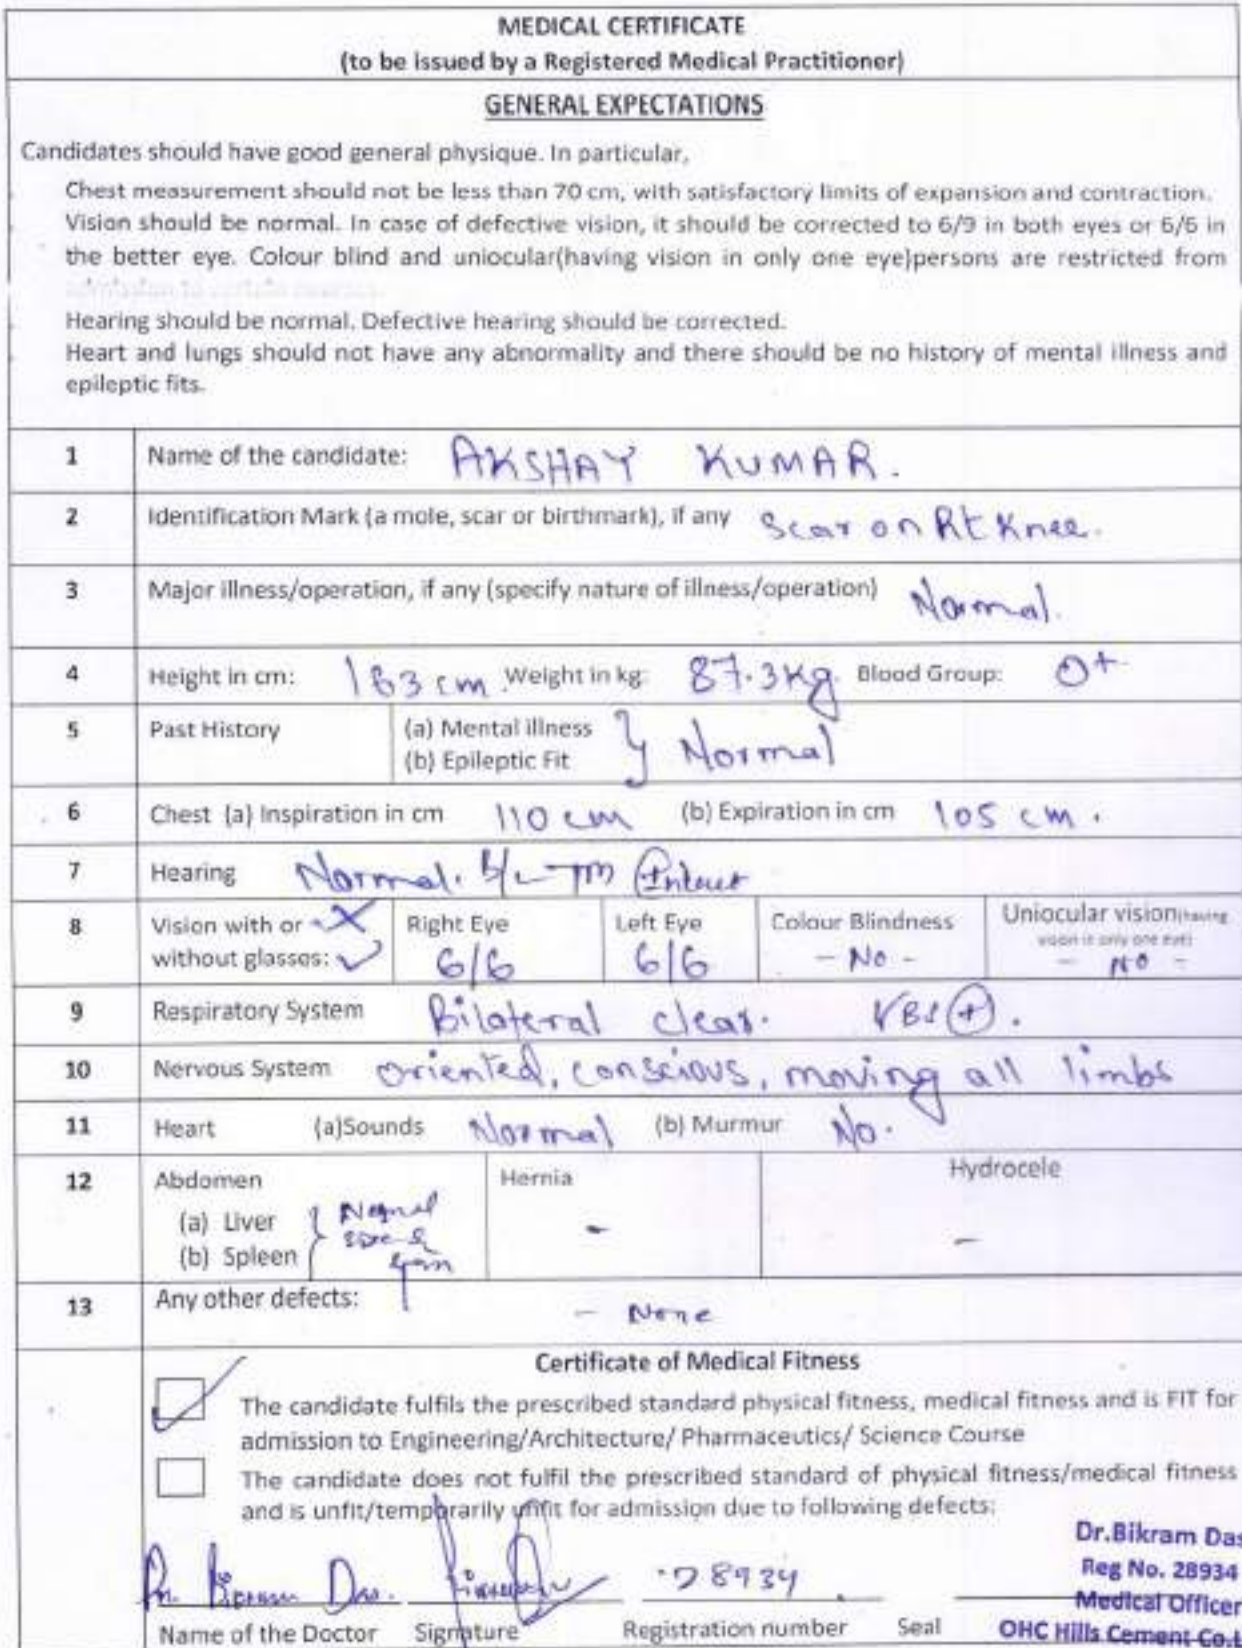 MEDICAL CERTIFICATE
(to be issued by a Registered Medical Practitioner)
GENERAL EXPECTATIONS
Candidates should have good general physique. In particular,
Chest measurement should not be less than 70 cm, with satisfactory limits of expansion and contraction.
Vision should be normal. In case of defective vision, it should be corrected to 6/9 in both eyes or 6/6 in
the better eye. Colour blind and uniocular(having vision in only one eye)persons are restricted from
admission to certain courses.
Hearing should be normal. Defective hearing should be corrected.
Heart and lungs should not have any abnormality and there should be no history of mental illness and
epileptic fits.
1 Name of the candidate: AKSHAY KUMAR.
2 Identification Mark (a mole, scar or birthmark), if any Scar on Rt Knee.
3 Major illness/operation, if any (specify nature of illness/operation) Normal.
4 Height in cm: 183 cm Weight in kg: 87.3 Kg. Blood Group: O+
5 Past History (a) Mental illness
(b) Epileptic Fit } Normal
6 Chest (a) Inspiration in cm 110 cm (b) Expiration in cm 105 cm.
7 Hearing Normal. B/L TM Intact
8 Vision with or Right Eye Left Eye Colour Blindness Uniocular vision(having
vision in only one eye)
without glasses: 6/6 6/6 - No - - NO -
9 Respiratory System Bilateral clear. VBS (+).
10 Nervous System oriented, conscious, moving all limbs
11 Heart (a)Sounds Normal (b) Murmur No.
12 Abdomen Hernia Hydrocele
(a) Liver } Normal - -
(b) Spleen
13 Any other defects: - None
Certificate of Medical Fitness
The candidate fulfils the prescribed standard physical fitness, medical fitness and is FIT for
admission to Engineering/Architecture/ Pharmaceutics/ Science Course
The candidate does not fulfil the prescribed standard of physical fitness/medical fitness
and is unfit/temporarily unfit for admission due to following defects:
Dr. Bikram Das. 28934
Name of the Doctor Signature Registration number Seal
Dr.Bikram Das
Reg No. 28934
Medical Officer
OHC Hills Cement Co.